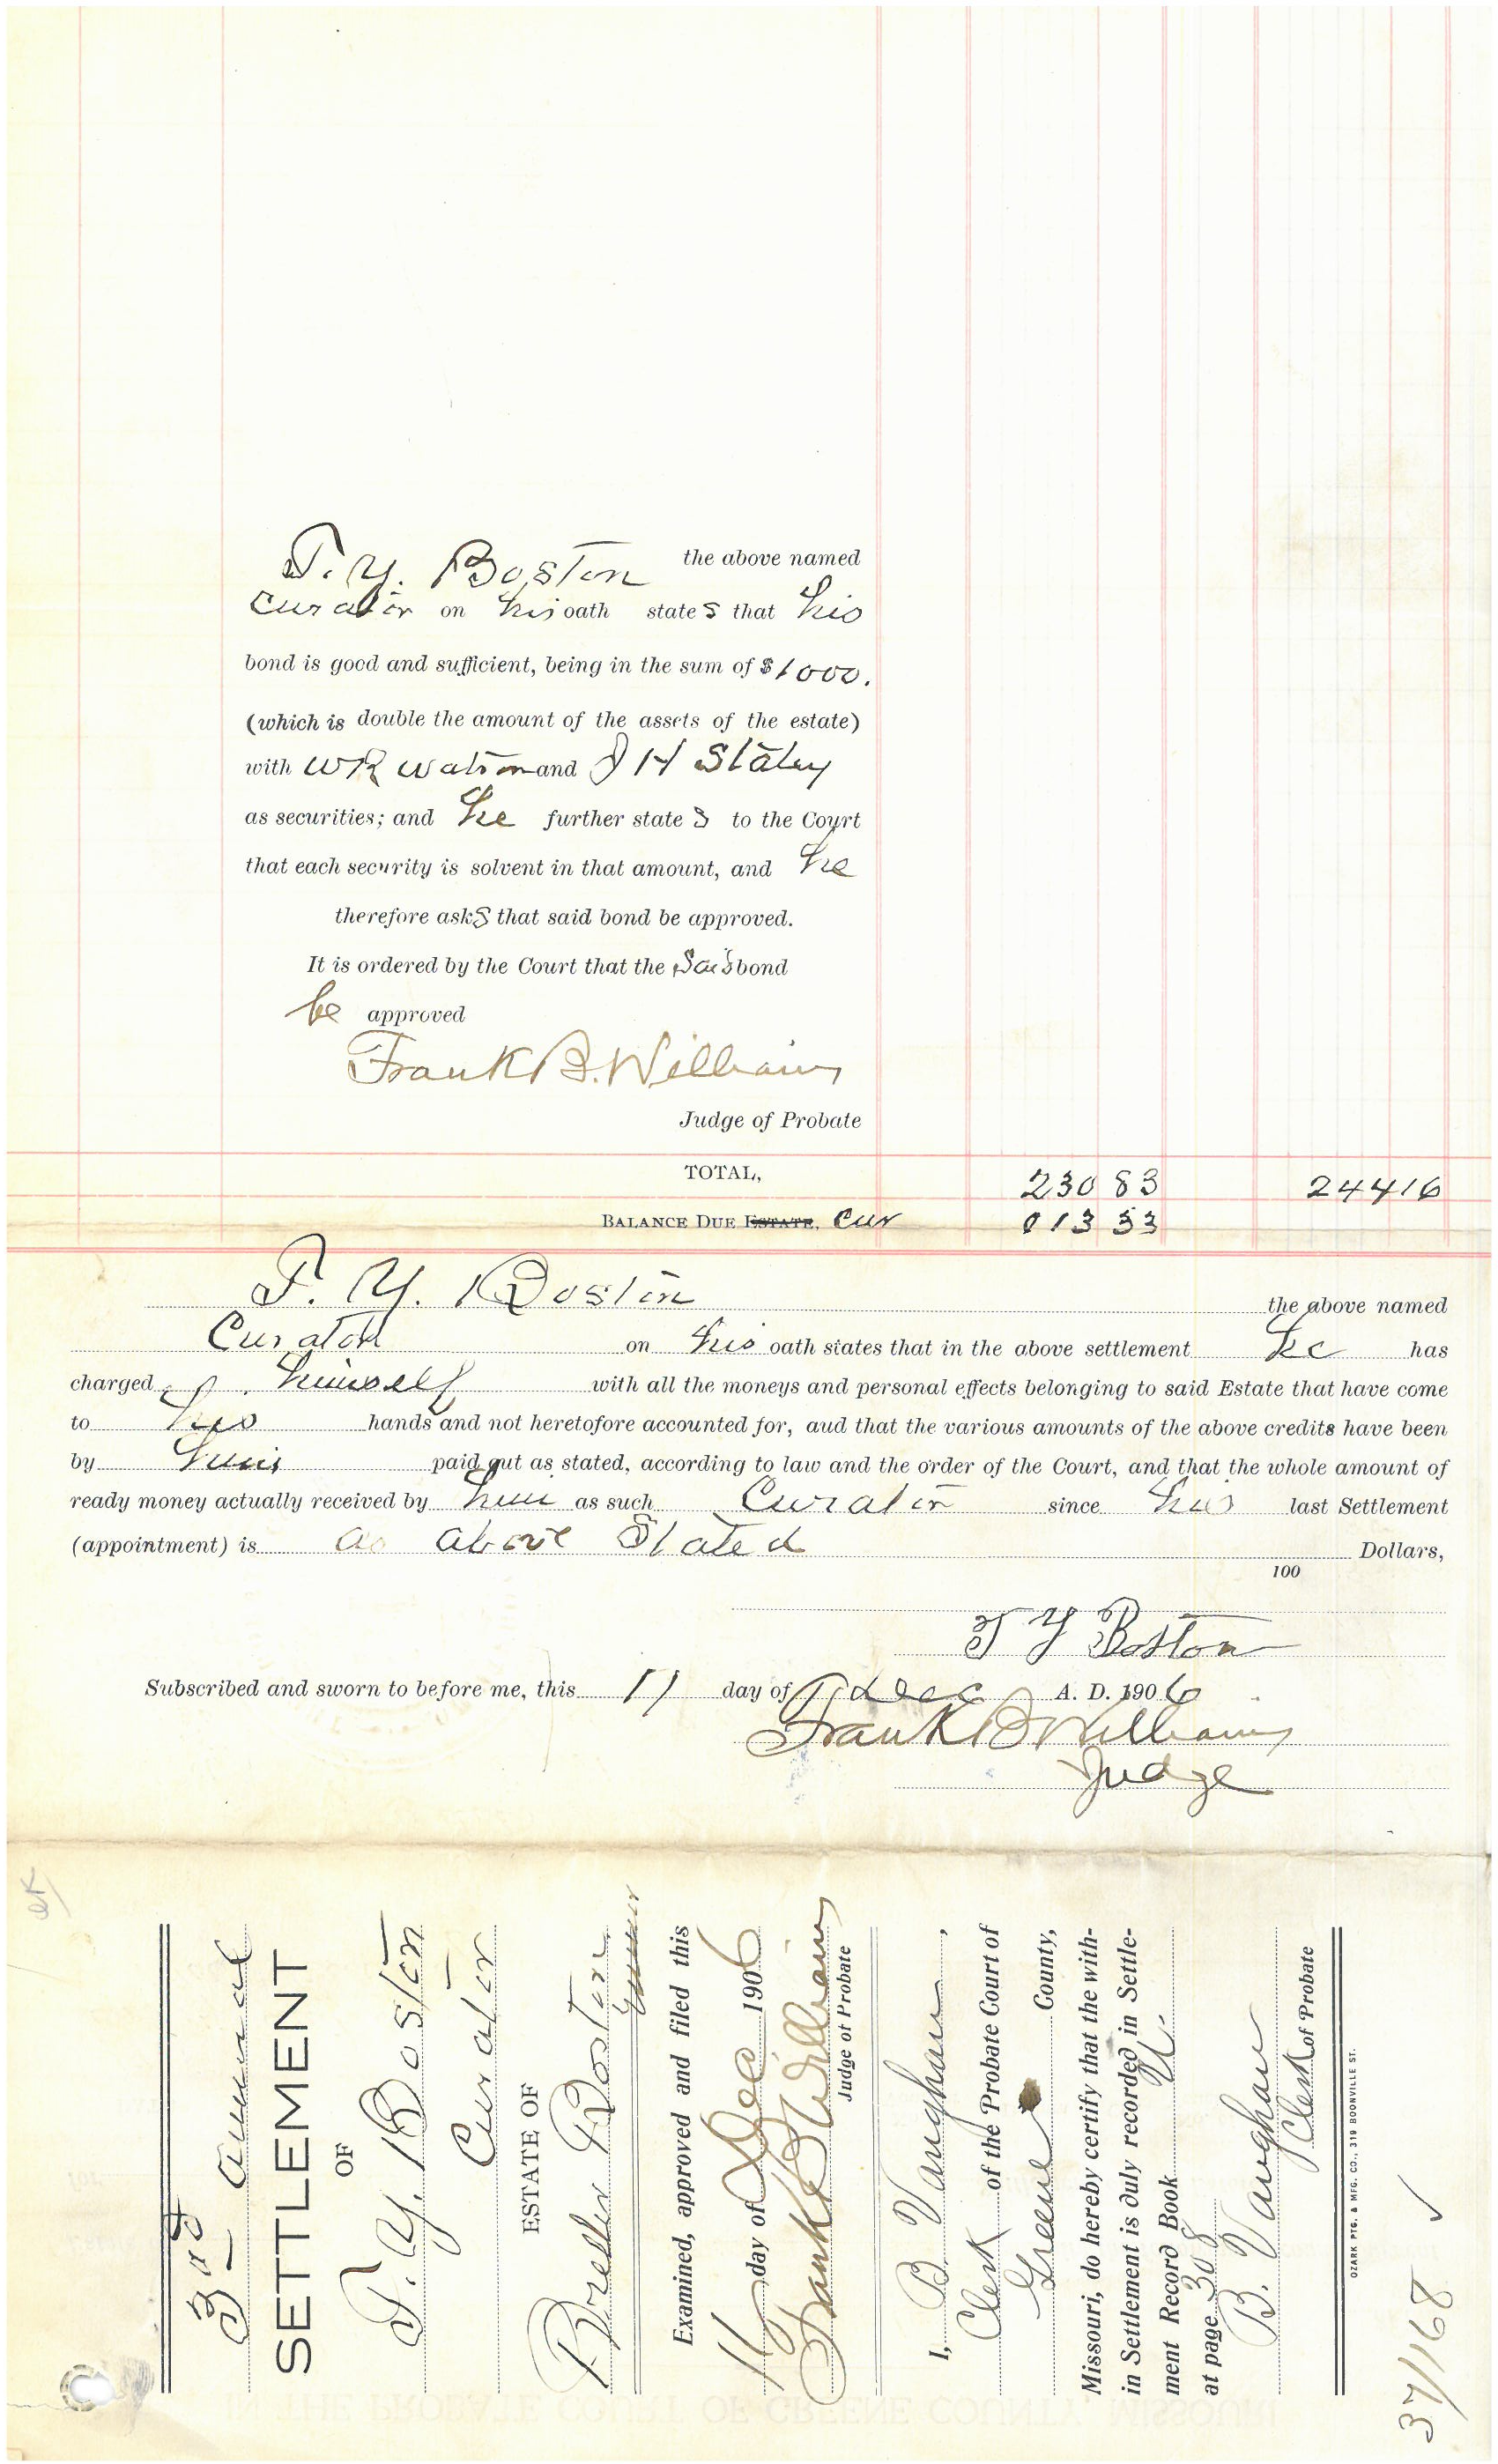 T. Y. Boston the above named
Curator on his oath states that his
bond is good and sufficient, being in the sum of $1000.
(which is double the amount of the assets of the estate)
with W R Watson and J H Staley
as securities; and he further states to the Court
that each security is solvent in that amount, and he
therefore asks that said bond be approved.
It is ordered by the Court that the said bond
be approved
Frank B. Williams
Judge of Probate
TOTAL, 230 83 244 16
BALANCE DUE ESTATE, Cur 013 33
T. Y. Boston the above named
Curator on his oath states that in the above settlement he has
charged himself with all the moneys and personal effects belonging to said Estate that have come
to his hands and not heretofore accounted for, aud that the various amounts of the above credits have been
by him paid out as stated, according to law and the order of the Court, and that the whole amount of
ready money actually received by him as such Curator since his last Settlement
(appointment) is as above Stated Dollars,
100
T Y Boston
Subscribed and sworn to before me, this 11 day of Dec A. D. 1906
Frank B Williams
Judge
3rd Annual
SETTLEMENT
OF
T. Y. Boston
Curator
ESTATE OF
Boston
Minor
Examined, approved and filed this
11 day of Dec 1906
Frank B Williams
Judge of Probate
I, B Vaughan,
Clerk of the Probate Court of
Greene County,
Missouri, do hereby certify that the with-
in Settlement is duly recorded in Settle-
ment Record Book U.
at page 308
B. Vaughan
Clerk of Probate
OZARK PTG. & MFG. CO., 319 BOONVILLE ST.
37168 ✓
IN THE PROBATE COURT OF GREENE COUNTY, MISSOURI